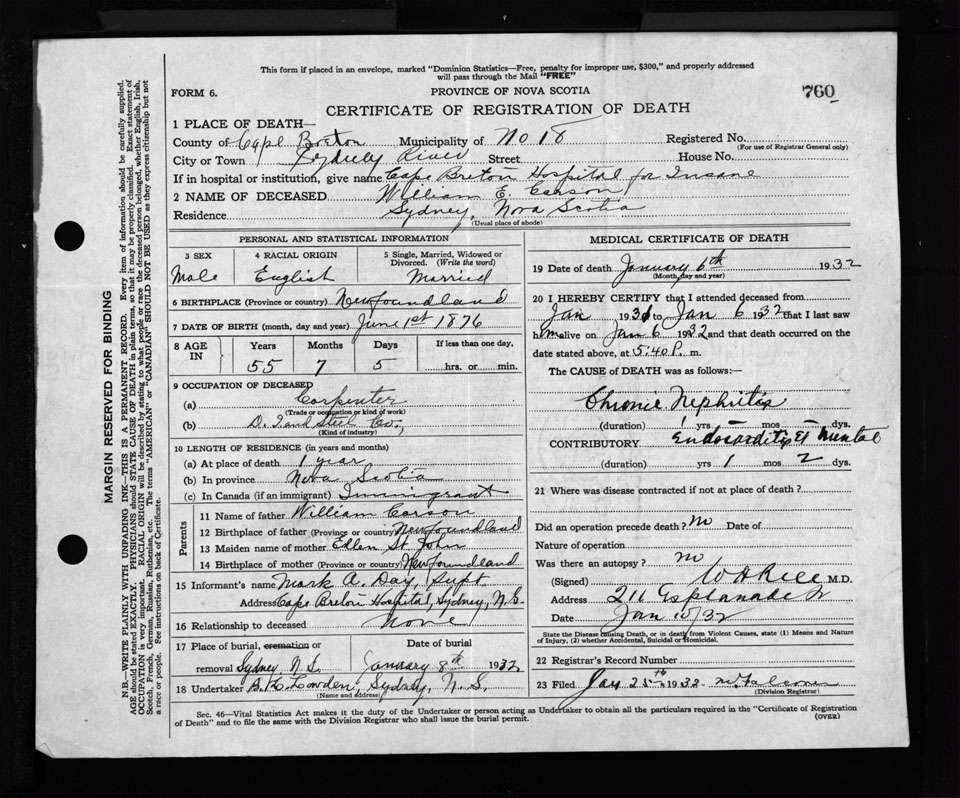 This form if placed in an envelope, marked "Dominion Statistics—Free, penalty for improper use, $300," and properly addressed
will pass through the Mail "FREE"
FORM 6.
PROVINCE OF NOVA SCOTIA
760
CERTIFICATE OF REGISTRATION OF DEATH
1 PLACE OF DEATH—
County of Cape Breton Municipality of No 18 Registered No.
(For use of Registrar General only)
City or Town Sydney River Street House No.
If in hospital or institution, give name Cape Breton Hospital for Insane
2 NAME OF DECEASED William E. Carson
Residence Sydney, Nova Scotia
(Usual place of abode)
PERSONAL AND STATISTICAL INFORMATION
3 SEX 4 RACIAL ORIGIN 5 Single, Married, Widowed or
Divorced. (Write the word)
Male English Married
6 BIRTHPLACE (Province or country) Newfoundland
7 DATE OF BIRTH (month, day and year) June 1st 1876
8 AGE IN Years Months Days If less than one day,
55 7 5 hrs. or min.
9 OCCUPATION OF DECEASED
(a) Carpenter
(Trade or occupation or kind of work)
(b) D. I. and Steel Co.,
(Kind of industry)
10 LENGTH OF RESIDENCE (in years and months)
(a) At place of death 1 year
(b) In province Nova Scotia
(c) In Canada (if an immigrant) Immigrant
Parents
11 Name of father William Carson
12 Birthplace of father (Province or country) Newfoundland
13 Maiden name of mother Ellen St. John
14 Birthplace of mother (Province or country) Newfoundland
15 Informant's name Mark A. Day, Supt
Address Cape Breton Hospital, Sydney, N.S.
16 Relationship to deceased None
17 Place of burial, cremation or Date of burial
removal Sydney N.S. January 8th 1932
18 Undertaker A. H. Lowden, Sydney, N.S.
(Name and address)
MEDICAL CERTIFICATE OF DEATH
19 Date of death January 6th 1932
(Month, day and year)
20 I HEREBY CERTIFY that I attended deceased from
Jan 1931 to Jan 6 1932 that I last saw
him alive on Jan 6 1932 and that death occurred on
date stated above, at 5.40 P. m.
The CAUSE of DEATH was as follows:—
Chronic Nephritis
(duration) 1 yrs mos. dys.
CONTRIBUTORY Endocarditis &
(duration) yrs 1 mos 2 dys.
21 Where was disease contracted if not at place of death?
Did an operation precede death? No Date of
Nature of operation
Was there an autopsy? no
(Signed) M.D.
Address 211 Esplanade
Date Jan /32
State the Disease causing Death, or in death from Violent Causes, state (1) Means and Nature
of Injury, (2) whether Accidental, Suicidal or Homicidal.
22 Registrar's Record Number
23 Filed Jan 25th 1932
(Division Registrar)
Sec. 46—Vital Statistics Act makes it the duty of the Undertaker or person acting as Undertaker to obtain all the particulars required in the "Certificate of Registration
of Death" and to file the same with the Division Registrar who shall issue the burial permit.
(OVER)
MARGIN RESERVED FOR BINDING
N.B.—WRITE PLAINLY WITH UNFADING INK—THIS IS A PERMANENT RECORD. Every item of information should be carefully supplied.
AGE should be stated EXACTLY. PHYSICIANS should STATE CAUSE OF DEATH in plain terms, so that it may be properly classified. Exact statement of
OCCUPATION is very important. RACIAL ORIGIN will be described by stating to what people or race the deceased person belonged, whether English, Irish,
Scotch, French, German, Russian, Ruthenian, etc. The terms "AMERICAN" or "CANADIAN" SHOULD NOT BE USED as they express citizenship but not
a race or people. See instructions on back of Certificate.